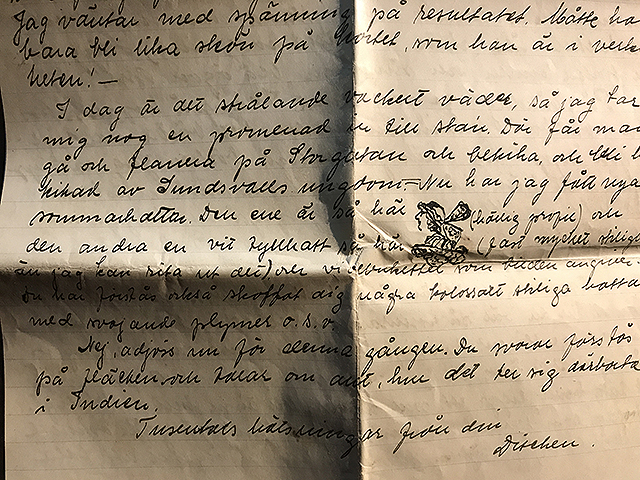 Jag väntar med spänning på resultatet. Måtte ha
bara bli lika skön på kortet, som han är i verk
heten! —
I dag är det strålande vackert väder, så jag tar
mig nog en promenad in till stan. Där får ma
gå och flanera på Storgatan och bekika, och bli b
kikad av Sundsvalls ungdom. — Nu har jag fått nya
sommarhattar. Den ene är så här (häng profil) och
den andra en vit tyllhatt så här (fast mycket stiliga
än jag kan rita ut det) och
Du har förstås också skaffat dig några kolossalt stiliga hatta
med svajande plymer o.s.v.
Nej, adjös nu för denna gången. Du svarar förstås
på fläcken och talar om allt, hur det ter sig därborta
i Indien.
Tusentals hälsningar från din